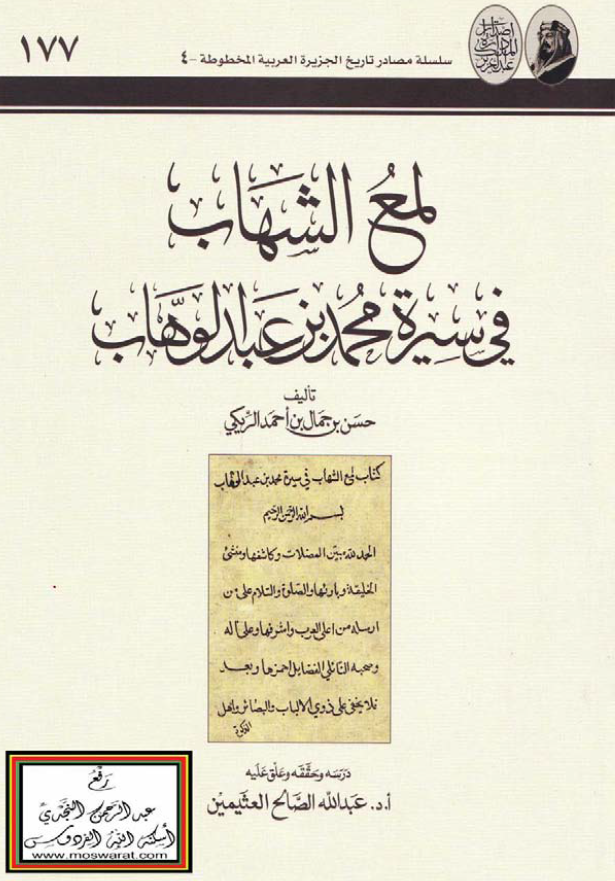 ١٧٧
سلسلة مصادر تاريخ الجزيرة العربية المخطوطة -٤
إصدارات
الدارة
الملك
عبدالعزيز
لمع الشهاب
في سيرة محمد بن عبدالوهاب
تأليف
حسن بن جمال بن أحمد الريكي
كتاب لمع الشهاب في سيرة محمد بن عبد الوهاب
بسم الله الرحمن الرحيم
الحمد لله مبين المعضلات وكاشفها ومنشئ
الخليقة وبارئها والصلوة والسلام على من
ارسله من اعلى العرب واشرفها وعلى آله
وصحبه النائلي الفضايل احمزها وبعد
فلا يخفى على ذوي الالباب والبصائر واهل
دَرَسَه وحقَّقَه وعلّق عَليه
أ.د. عبدالله الصالح العثيمين
رَفْعُ
عبد الرحمن النجدي
أسكنه الله الفردوس
www.moswarat.com